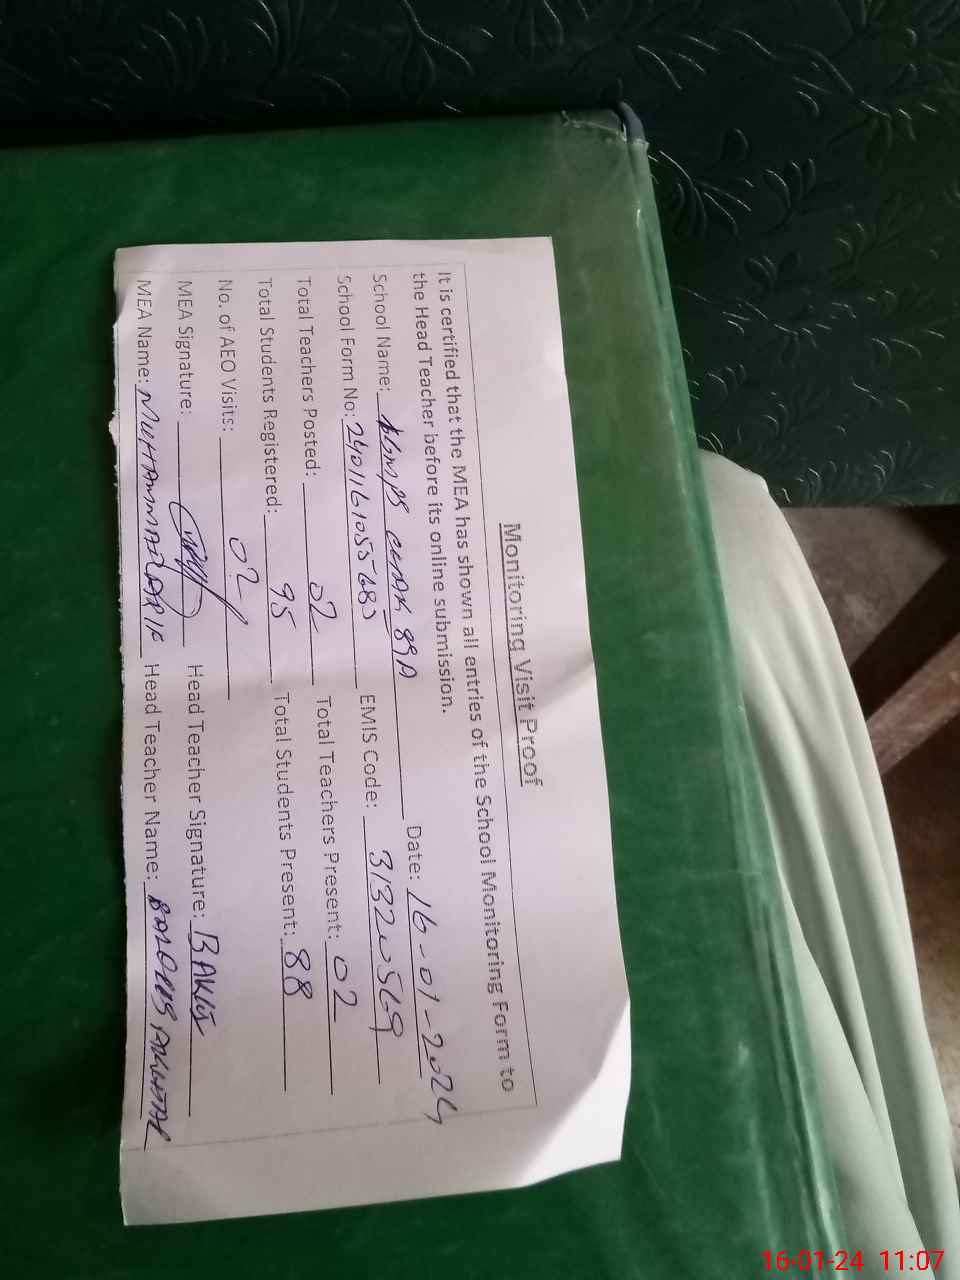 Monitoring Visit Proof
It is certified that the MEA has shown all entries of the School Monitoring Form to
the Head Teacher before its online submission.
School Name: CHAK 89A Date: 16-01-2024
School Form No: EMIS Code: 31320569
Total Teachers Posted: 02 Total Teachers Present: 02
Total Students Registered: 95 Total Students Present: 88
No. of AEO Visits: 02
MEA Signature: Head Teacher Signature:
MEA Name: MUHAMMAD TARIK Head Teacher Name:
16-01-24 11:07